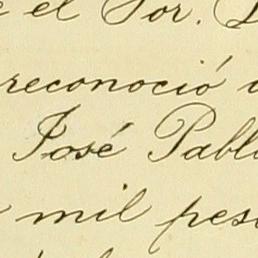 el Sor.
reconoció
José Pablo
mil pes